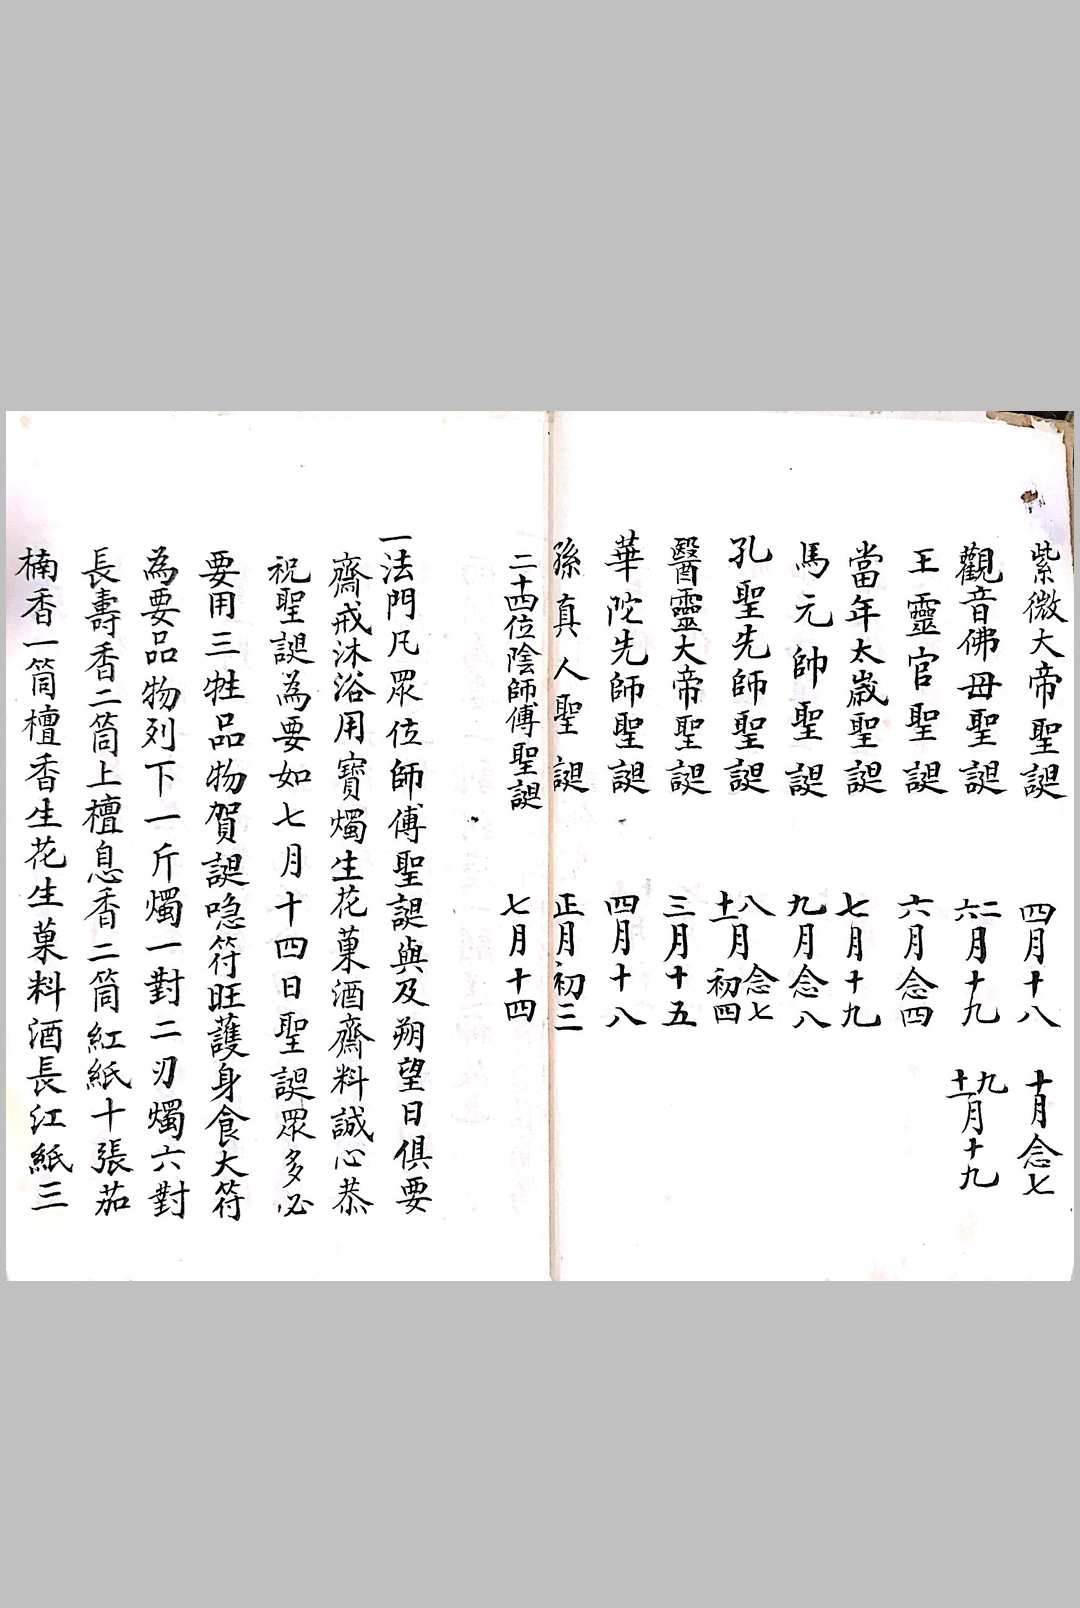 紫微大帝聖誕 四月十八 十月念七
觀音佛母聖誕 二六月十九 九十一月十九
王靈官聖誕 六月念四
當年太歲聖誕 七月十九
馬元帥聖誕 九月念八
孔聖先師聖誕 八月念七 十一月初四
醫靈大帝聖誕 三月十五
華陀先師聖誕 四月十八
孫真人聖誕 正月初三
二十四位陰師傅聖誕 七月十四
一法門凡眾位師傅聖誕與及朔望日俱要
齋戒沐浴用寶燭生花菓酒齋料誠心恭
祝聖誕為要如七月十四日聖誕眾多必
要用三牲品物賀誕喼符旺護身食大符
為要品物列下一斤燭一對二刃燭六對
長壽香二筒上檀息香二筒紅紙十張茄
楠香一筒檀香生花生菓料酒長江紙三